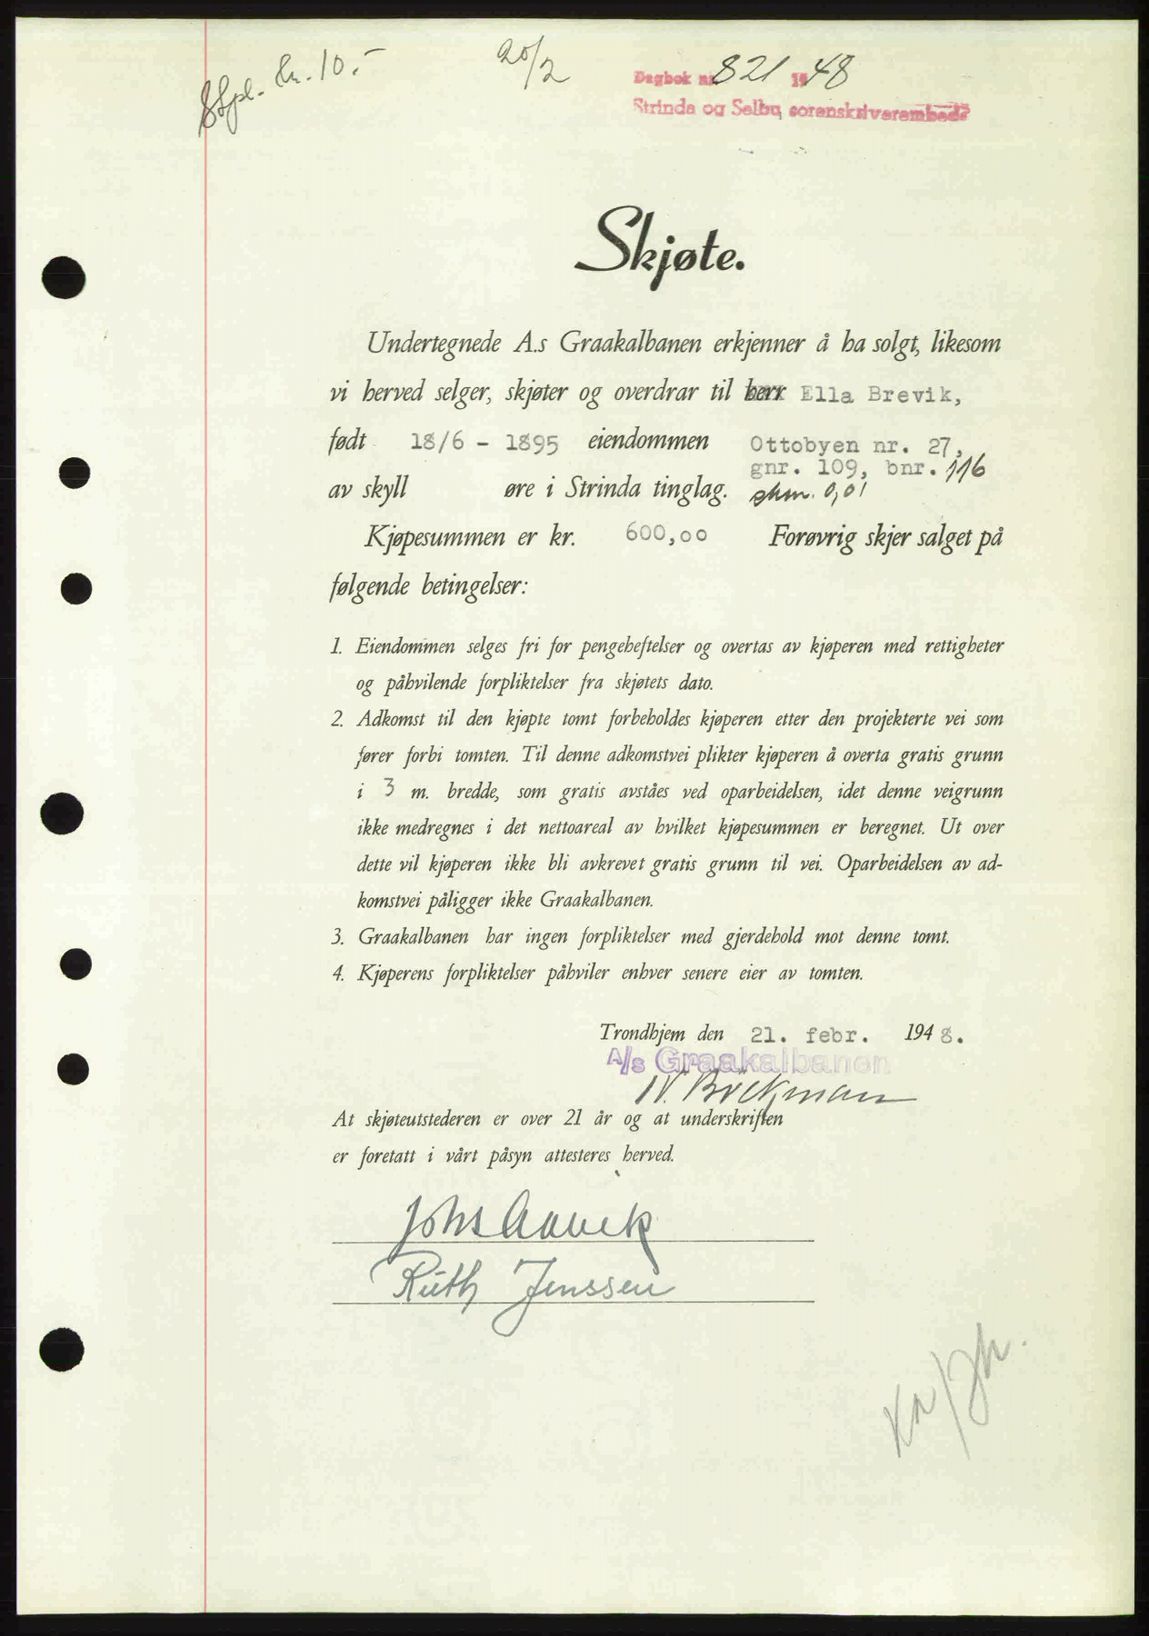 Stpl. kr. 10.-
20/2
Dagbok nr. 821 1948
Strinda og Selbu sorenskriverembede
Skjøte.
Undertegnede A.s Graakalbanen erkjenner å ha solgt, likesom
vi herved selger, skjøter og overdrar til herr Ella Brevik,
født 18/6 - 1895 eiendommen Ottobyen nr. 27,
gnr. 109, bnr. 116
av skyll øre i Strinda tinglag. skm. 0,01
Kjøpesummen er kr. 600,00 Forøvrig skjer salget på
følgende betingelser:
1. Eiendommen selges fri for pengeheftelser og overtas av kjøperen med rettigheter
og påhvilende forpliktelser fra skjøtets dato.
2. Adkomst til den kjøpte tomt forbeholdes kjøperen etter den projekterte vei som
fører forbi tomten. Til denne adkomstvei plikter kjøperen å overta gratis grunn
i 3 m. bredde, som gratis avståes ved oparbeidelsen, idet denne veigrunn
ikke medregnes i det nettoareal av hvilket kjøpesummen er beregnet. Ut over
dette vil kjøperen ikke bli avkrevet gratis grunn til vei. Oparbeidelsen av ad-
komstvei påligger ikke Graakalbanen.
3. Graakalbanen har ingen forpliktelser med gjerdehold mot denne tomt.
4. Kjøperens forpliktelser påhviler enhver senere eier av tomten.
Trondhjem den 21. febr. 1948.
A/s Graakalbanen
N. Bøckman
At skjøteutstederen er over 21 år og at underskriften
er foretatt i vårt påsyn attesteres herved.
Johs Aavik
Ruth Jenssen